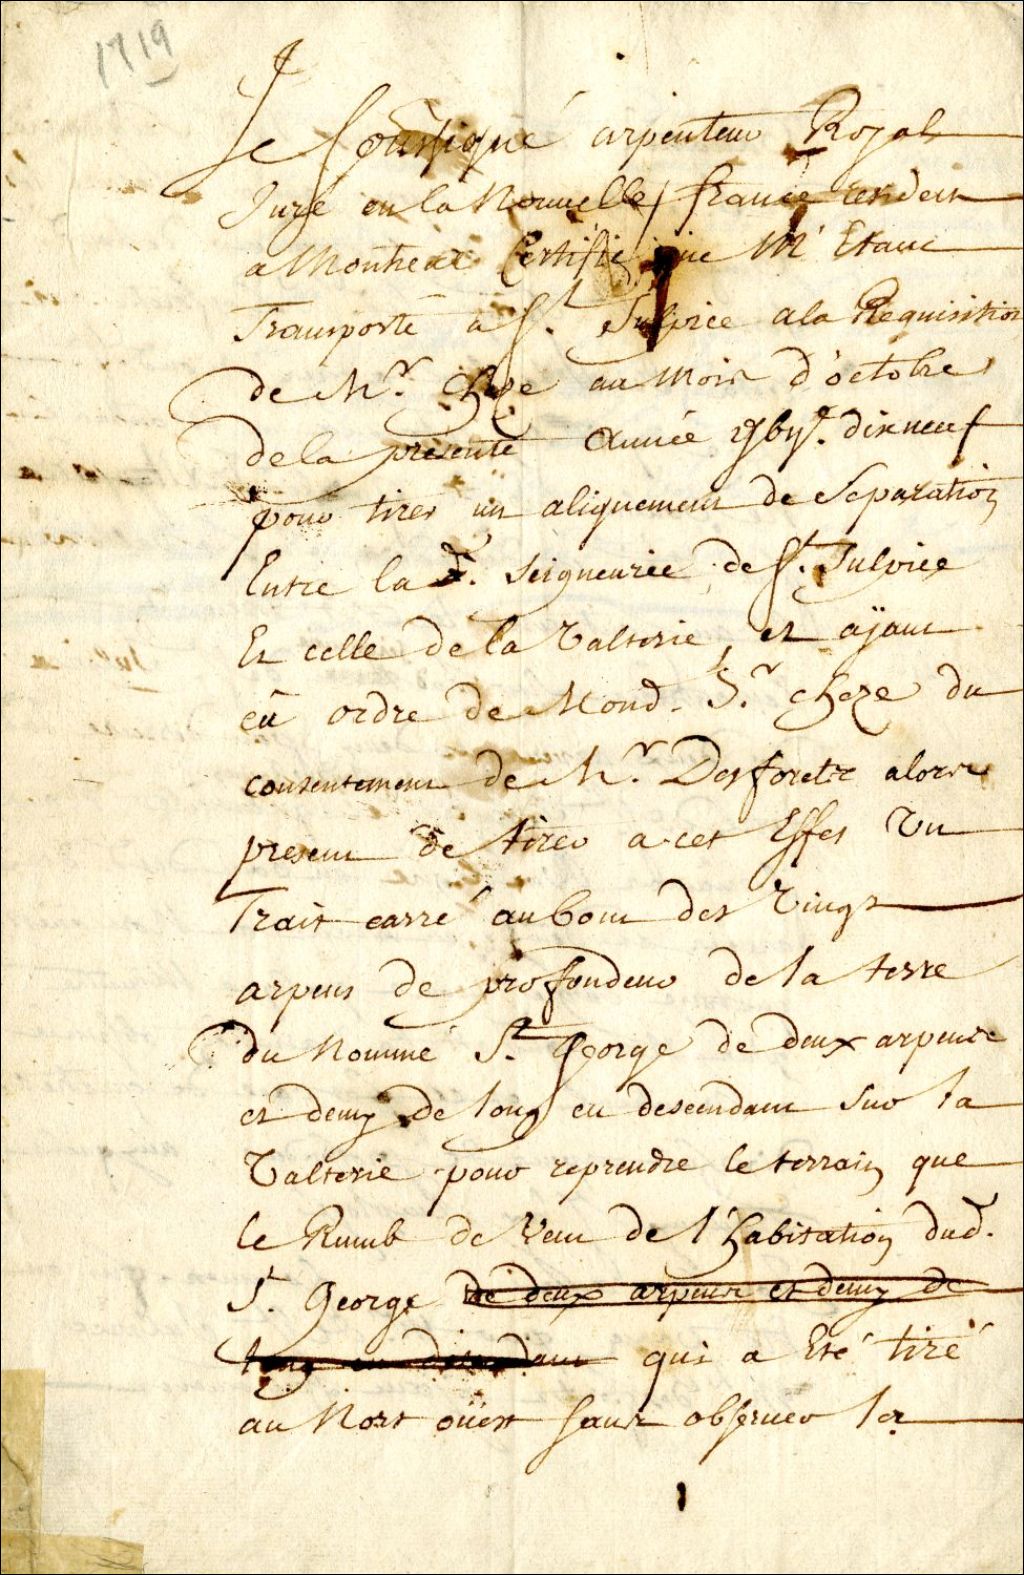 1719
Je soussigné arpenteur Royal
Juré en la Nouvelle france residen
a Montreal Certifie que M'Etant
Transporté a St. Sulpice a la Requisition
de Mr. Cheze au Mois d'octobre
de la presente année dix neuf
pour tirer un alignement de Separation
Entre la d. Seigneurie de St. Sulpice
Et celle de la Valterie, et aÿant
eû ordre de Mond. Sr. Cheze du
consentement de Mr. Desforets alors
present de tirer a cet Effet Un
Trait carré au bout des Vingt
arpens de profondeur de la terre
du Nommé St George de deux arpens
et demy de long en descendant Sur la
Valterie pour reprendre le terrain que
le Rumb de Vent de l'habitation dud.
St. George de deux arpens et demy de
long en descendant qui a Eté tiré
au Nort oüest sans observer la
1